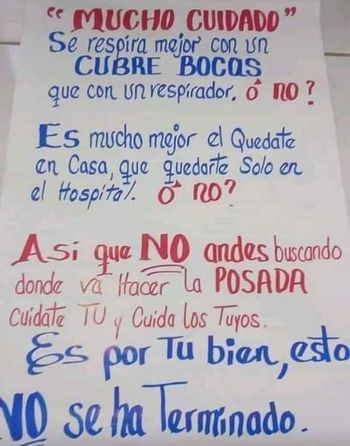 “MUCHO CUIDADO”
Se respira mejor con un
CUBRE BOCAS
que con un respirador. Ó NO?
Es mucho mejor el Quedate
en Casa, que quedarte Solo en
el Hospital. Ó NO?
Así que NO andes buscando
donde va Hacer la POSADA
Cuidate TU y Cuida los Tuyos.
Es por Tu bien, esto
NO se ha Terminado.